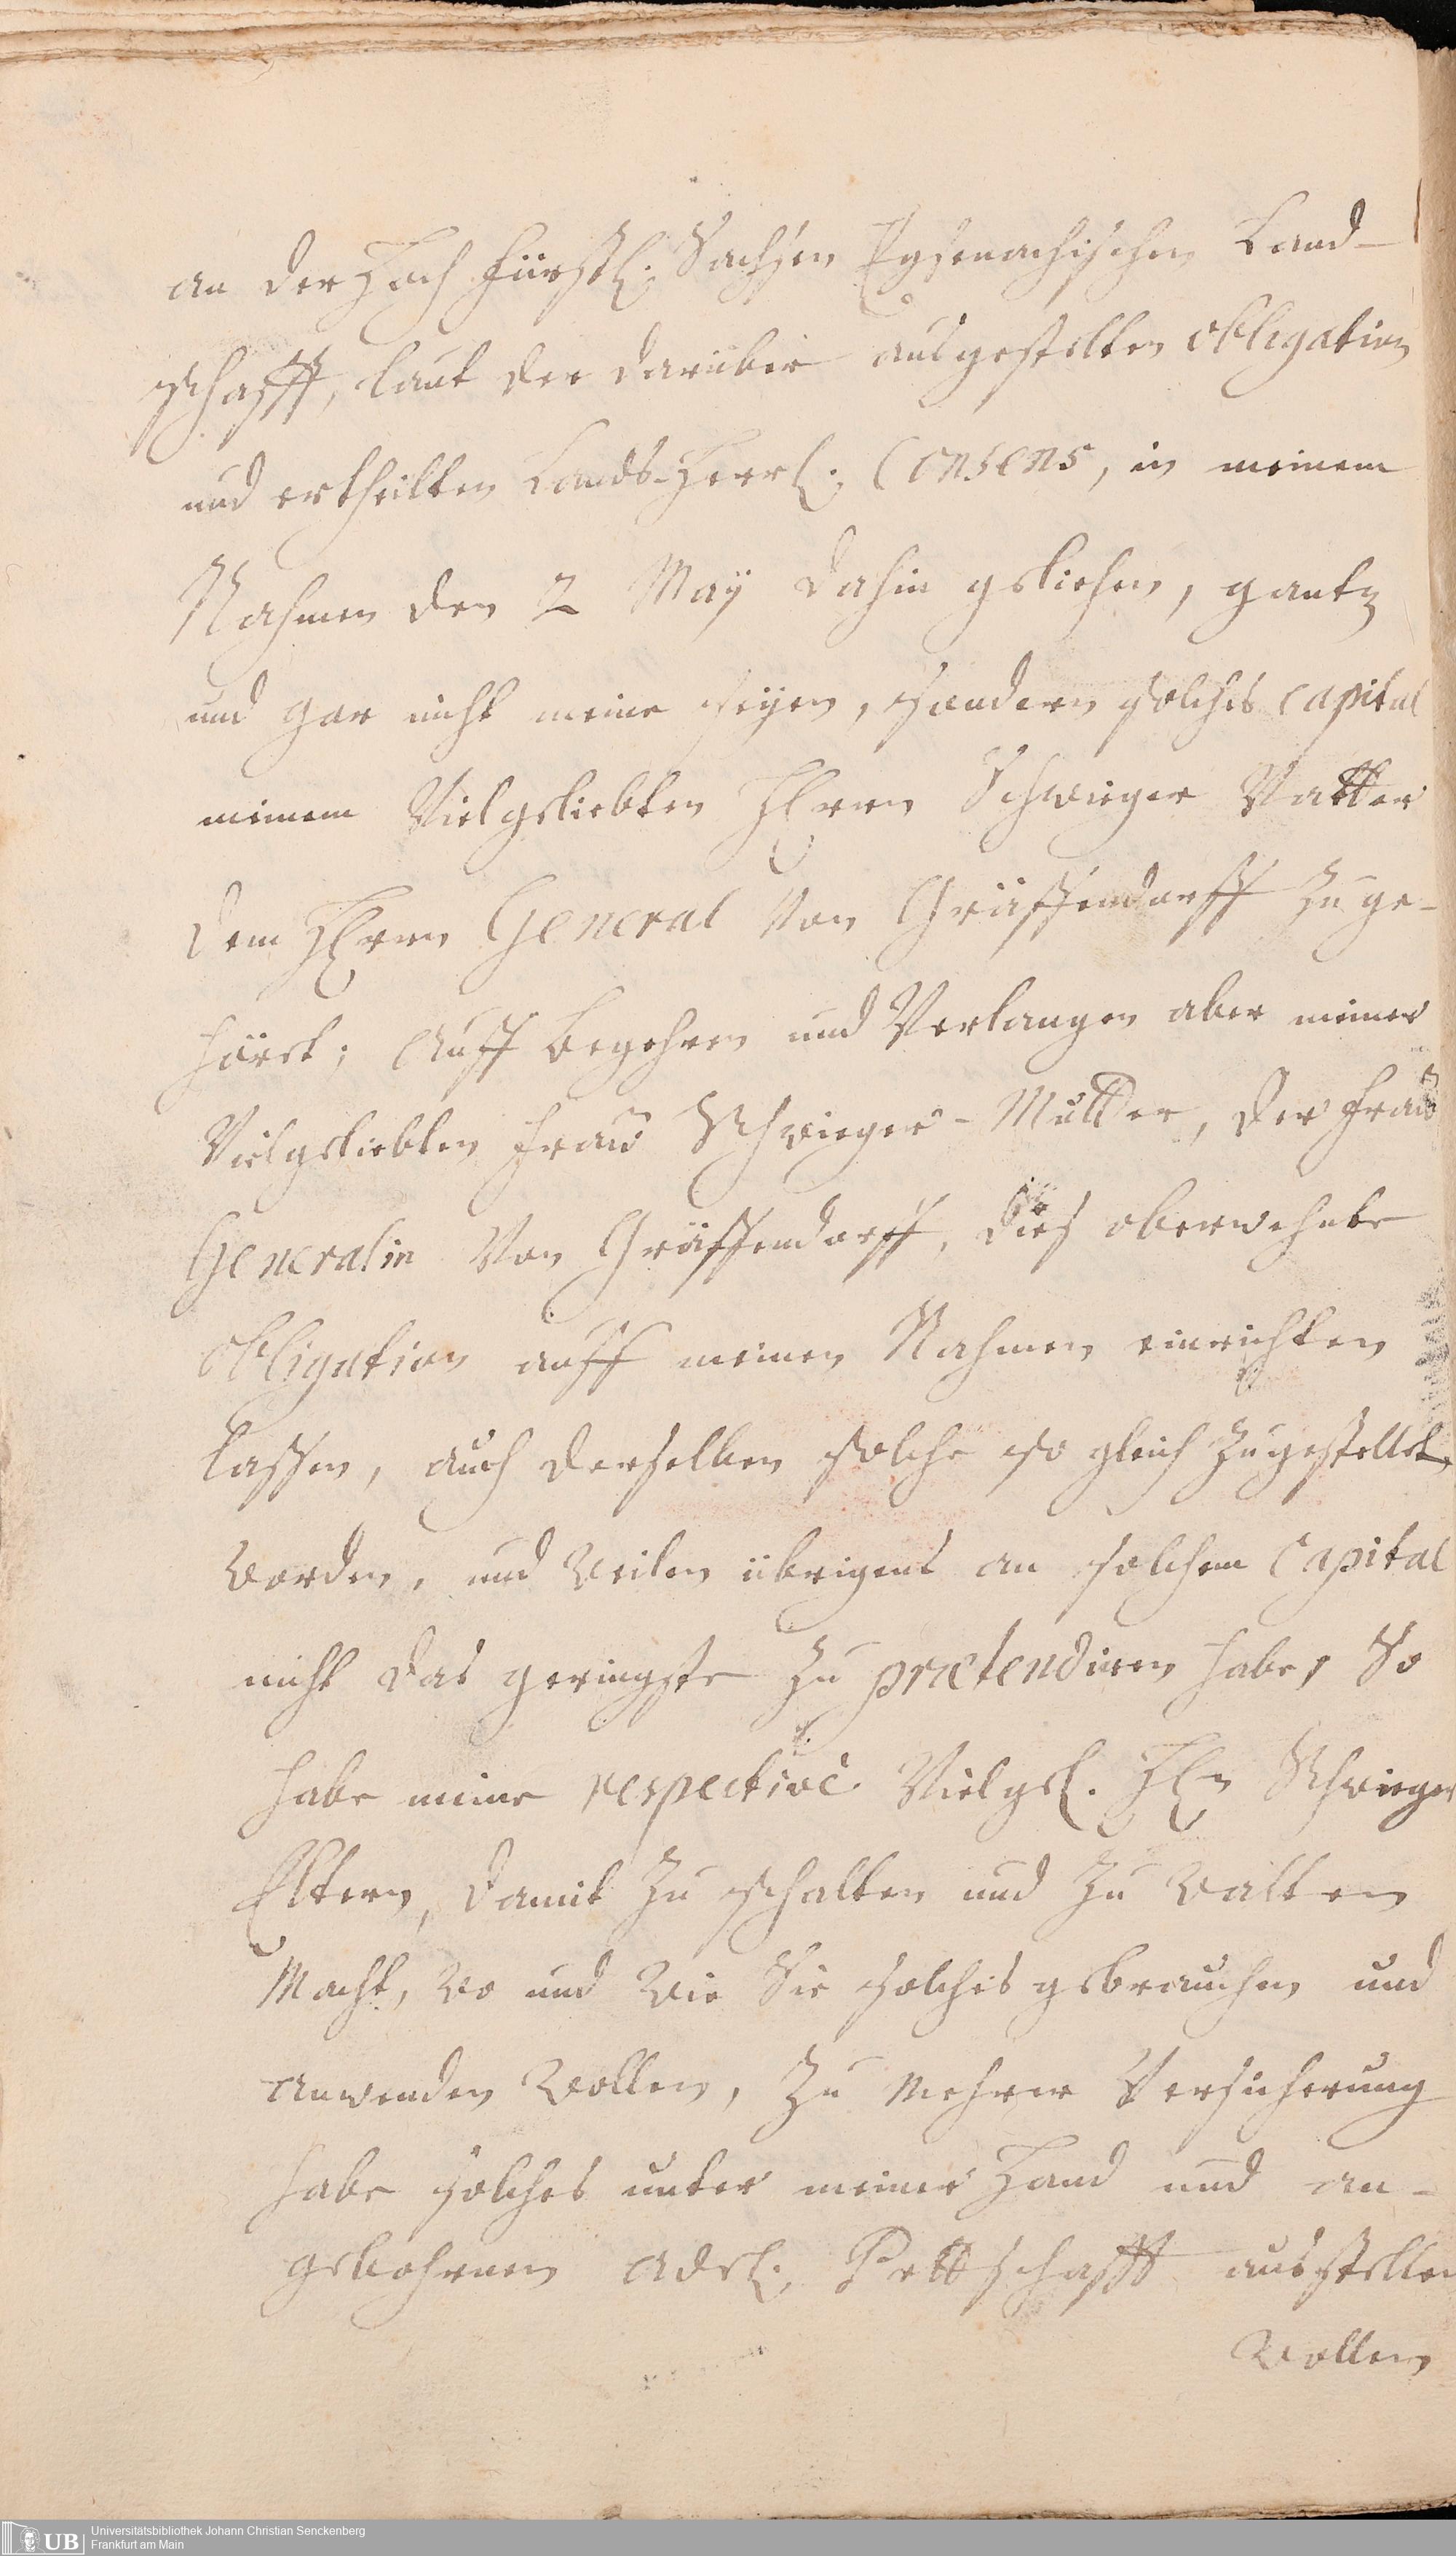 an der Hoch Fürstl: Sachsen Eysenachischen Land-
schafft, laut der darüber ausgestelten obligation
und ertheilten Lands-Herrl: Consens, in meinem
Nahmen den 2 Maÿ dahin geliehen, gantz
und gar nicht meine seÿen, sondern solches capital
meinem Vielgeliebten Herrn Schwieger Vatter
dem Herrn General Von Gräffendorff zu ge-
höret; Auff begehren und Verlangen aber meiner
Vielgeliebten Frau Schwieger-Mutter, der Frau
Generalin Von Gräffendorff, dies oberwehnte
obligation auff meinen Nahmen einrichten
lassen, auch derselben solche so gleich zugestellet
worden, und weilen übrigens an solchem Capital
nicht das geringste zu prætendiren habe, So
habe meine respectivè Vielgel. Hln Schwieger
Eltern, damit zu schalten und zu walten
Macht, wo und wie Sie solches gebrauchen und
anwenden wollen, Zu mehrer Versicherung
habe solches unter meiner Hand und an-
gebohrnen Adel: Pettschafft ausstellen
wollen
Universitätsbibliothek Johann Christian Senckenberg
Frankfurt am Main
UB